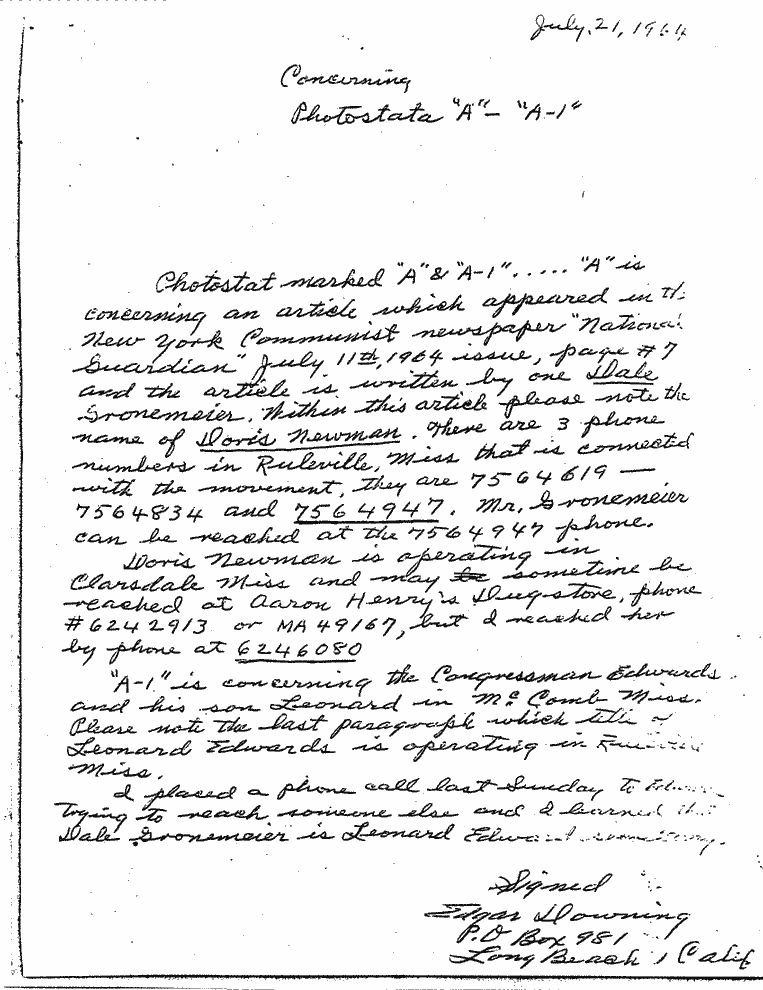 July, 21, 1964
Concerning
Photostata "A" – "A-1"
Photostat marked "A" & "A-1" ..... "A" is
concerning an article which appeared in th
New York Communist newspaper "National
Guardian" July 11th, 1964 issue, page #7
and the article is written by one Dale
Gronemeier. Within this article please note the
name of Doris Newman. There are 3 phone
numbers in Ruleville, Miss that is connected
with the movement, they are 7564619 —
7564834 and 7564947. Mr. Gronemeier
can be reached at the 7564947 phone.
Doris Newman is operating in
Clarsdale Miss and may be sometime be
reached at Aaron Henry's Dugstore, phone
#6242913 or MA 49167, but I reached her
by phone at 6246080
"A-1" is concerning the Congressman Edwards
and his son Leonard in Mc Comb Miss.
Please note the last paragraph which title of
Leonard Edwards is operating in
Miss.
I placed a phone call last Sunday to
trying to reach someone else and I learned
Dale Gronemeier is Leonard Edward
Signed
Edgar Downing
P.O Box 981
Long Beach, Calif